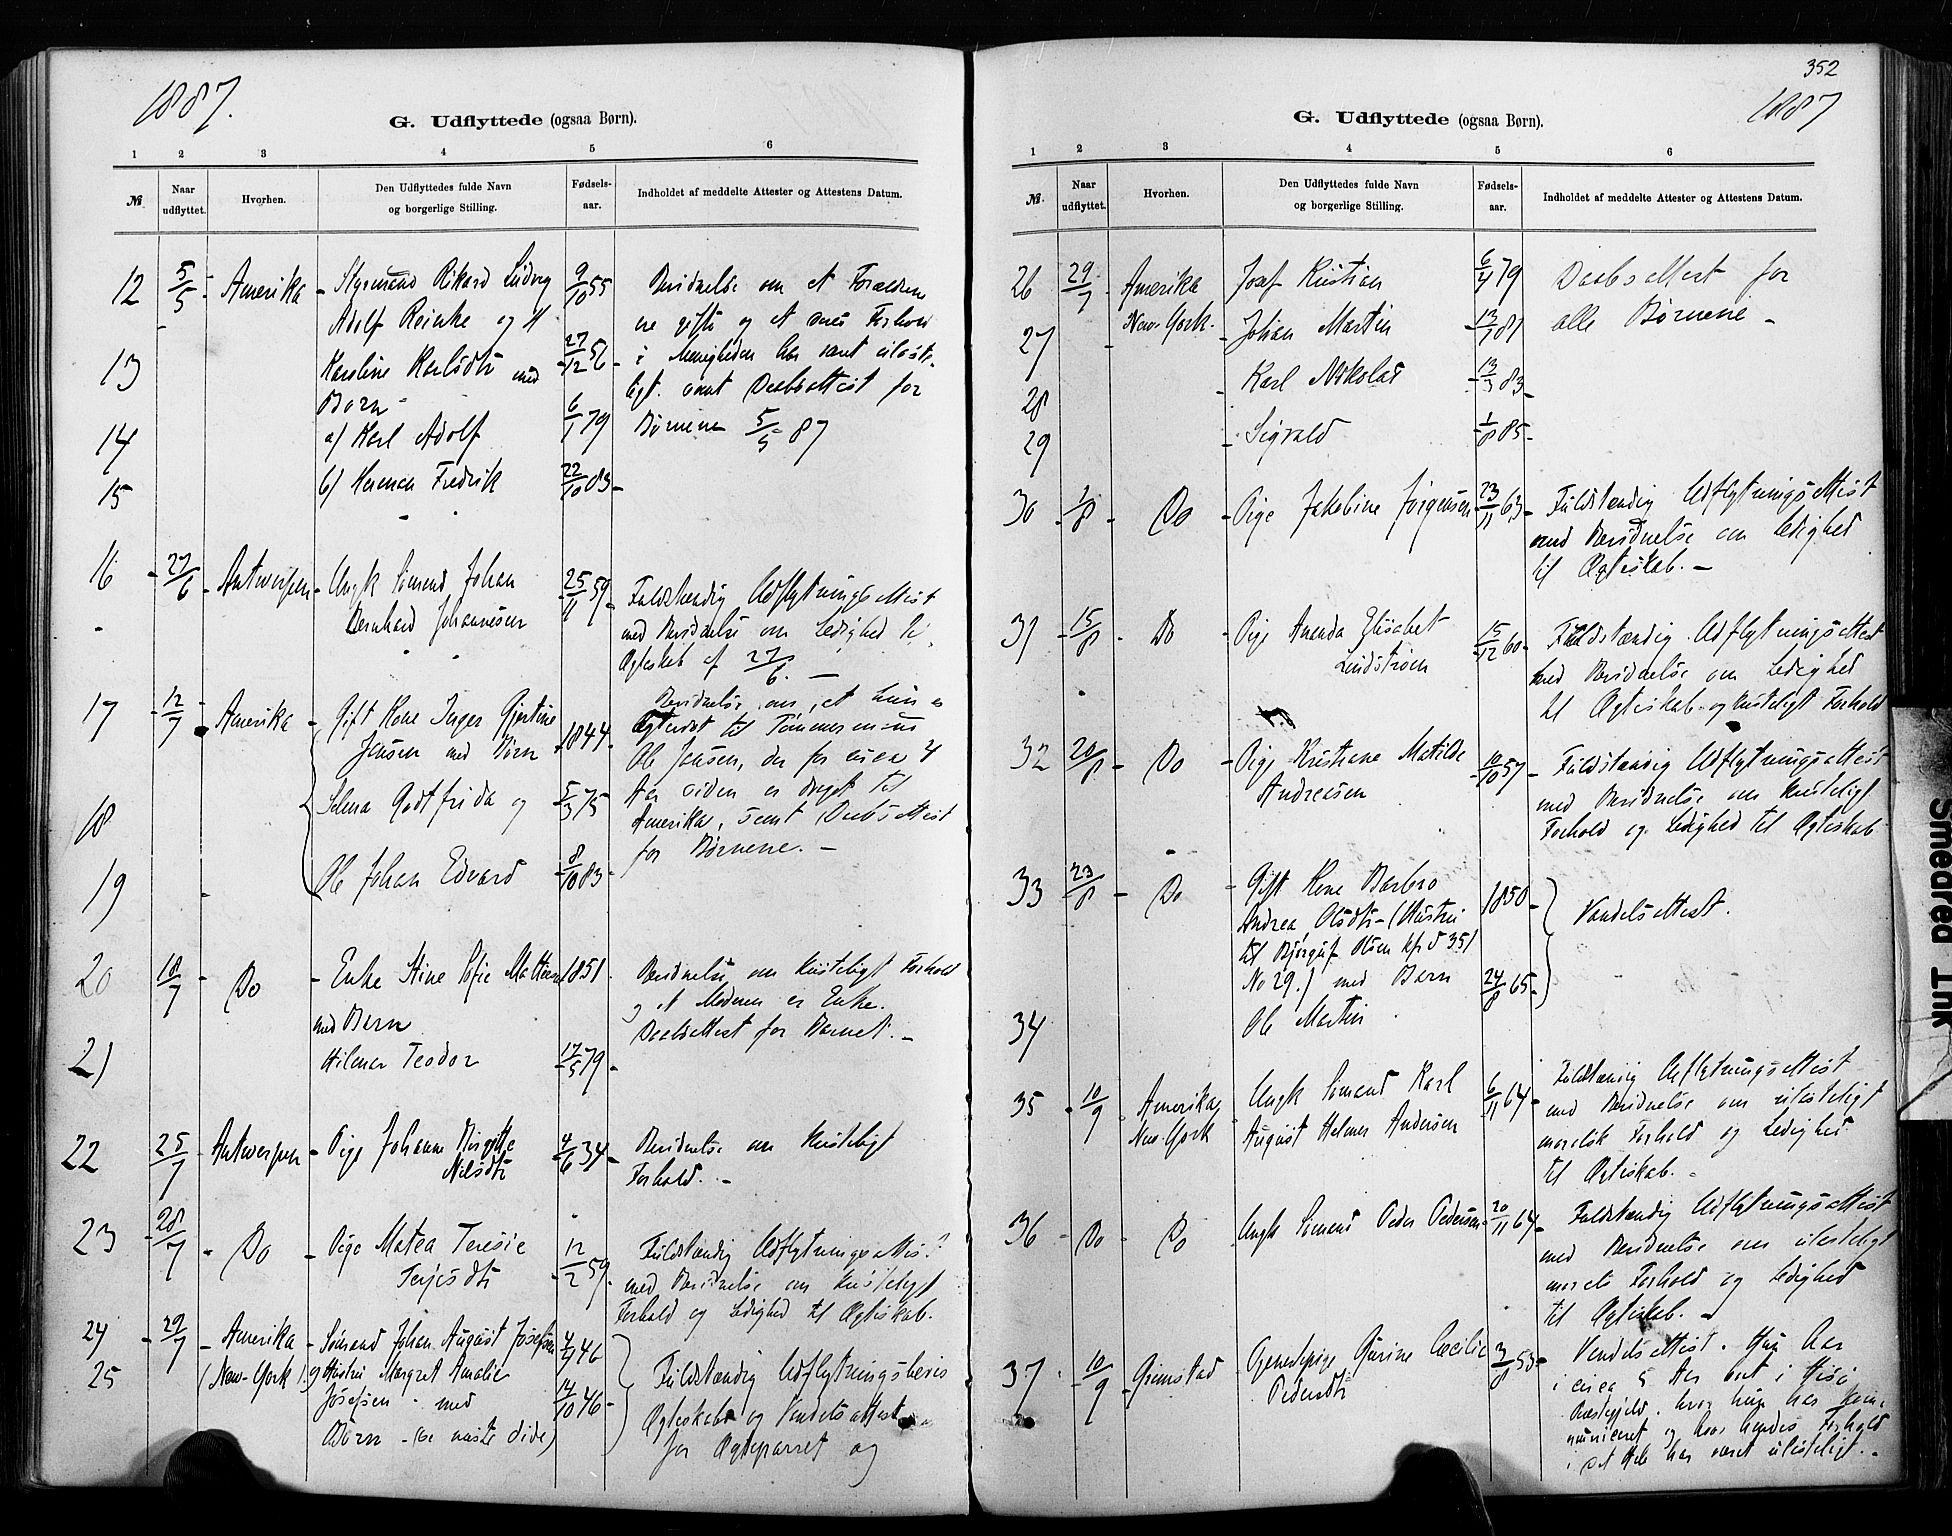 1887.
G. Udflyttede (ogsaa Børn).
1 2 3 4 5 6
№ Naar udflyttet. Hvorhen. Den Udflyttedes fulde Navn og borgerlige Stilling. Fødselsaar. Indholdet af meddelte Attester og Attestens Datum.
12 5/5 Amerika Styrmand Rikard Ludvig 9/10 55 om at Forældre
Adolf Reinke og H ne gifte og at deres Forhold
13 Karoline Karlsdtr med 27/12 56 i Menigheden har været
Børn samt Daabsattest for
14 a) Karl Adolf 6/1 79 Børnene 5/5 87
15 b) Herman Fredrik 22/10 83
16 27/6 Antwerpen Ungk Sømand Johan 25/11 59 Fuldstændig Udflytningsattest
Bernhard Johannesen med Bevidnelse om Ledighed til
Ægteskab af 27/6.
17 12/7 Amerika Gift Kone Inger Gjertine 1844 Bevidnelse om, at hun er
Jensen med Børn Ægteviet til Tømmermand
Ole Jensen, der for circa 4
18 Selma Godtfrida og 5/3 75 Aar siden er draget til
Amerika, samt Daabsattest
19 Ole Johan Edvard 8/10 83 for Børnene.
20 18/7 Do Enke Stine Sofie 1851 Bevidnelse om kristeligt Forhold
med Børn og at Moderen er Enke.
21 Hilmar Teodor 17/5 79 Daabsattest for Barnet.
22 25/7 Antwerpen Pige Johanne Birgitte 4/6 34 Bevidnelse om kristeligt
Nilsdtr Forhold.
23 28/7 Do Pige Matea Teresie 12/2 59 Fuldstændig Udflytningsattest
Terjesdtr med Bevidnelse om kristeligt
Forhold og Ledighed til Ægteskab.
24 29/7 Amerika Sømand Johan August Josefsen 4/9 46
25 (New-York) og Hustru Margret Amalie 14/10 46 Fuldstændig Udflytningsbevis
Josefsen med Ægteskabs og Vandelsattest
Børn (se næste Side) for Ægteparret og
352
1887
G. Udflyttede (ogsaa Børn).
1 2 3 4 5 6
№ Naar udflyttet. Hvorhen. Den Udflyttedes fulde Navn og borgerlige Stilling. Fødselsaar. Indholdet af meddelte Attester og Attestens Datum.
26 29/7 Amerika Josef Kristian 6/4 79 Daabsattest for
27 New-York. Johan Martin 13/1 81 alle Børnene
28 Karl Nikolai 13/3 83
29 Sigvald 1/8 85
30 1/8 Do Pige Jakobine Jørgensen 23/11 63 Fuldstændig Udflytningsattest
med Bevidnelse om Ledighed
til Ægteskab.
31 15/8 Do Pige Amanda Elisabet 15/12 60 Fuldstændig Udflytningsattest
Lindstrøm med Bevidnelse om Ledighed
til Ægteskab og kristeligt Forhold
32 20/8 Do Pige Kristiane Matilde 10/10 57 Fuldstændig Udflytningsattest
Andreasen med Bevidnelse om kristeligt
Forhold og Ledighed til Ægteskab
33 23/8 Do Gift Kone Barbro 1850 Vandelsattest.
Andrea Olsdtr (Hustru
til Bjørgulf Olsen kfr S 351
No 29.) med Barn 24/8 65
34 Ole Martin
35 10/9 Amerika Ungk Sømand Karl 6/11 64 Fuldstændig Udflytningsattest
New-York August Helmer Andersen med Bevidnelse om
moralsk Forhold og Ledighed
til Ægteskab.
36 Do Do Ungk Sømand Peder Pedersen 20/11 64 Fuldstændig Udflytningsattest
med Bevidnelse om ulasteligt
moralsk Forhold og Ledighed
til Ægteskab.
37 10/9 Grimstad Tjenestepige Gurine Cecilie 3/8 53 Vandelsattest. Hun har
Pedersdtr i circa 5 Aar boet i Hisø
Præstegjeld, hvor hun har kom-
municeret og hvor hendes Forhold
i det Hele har været ulasteligt.
Smeared Ink